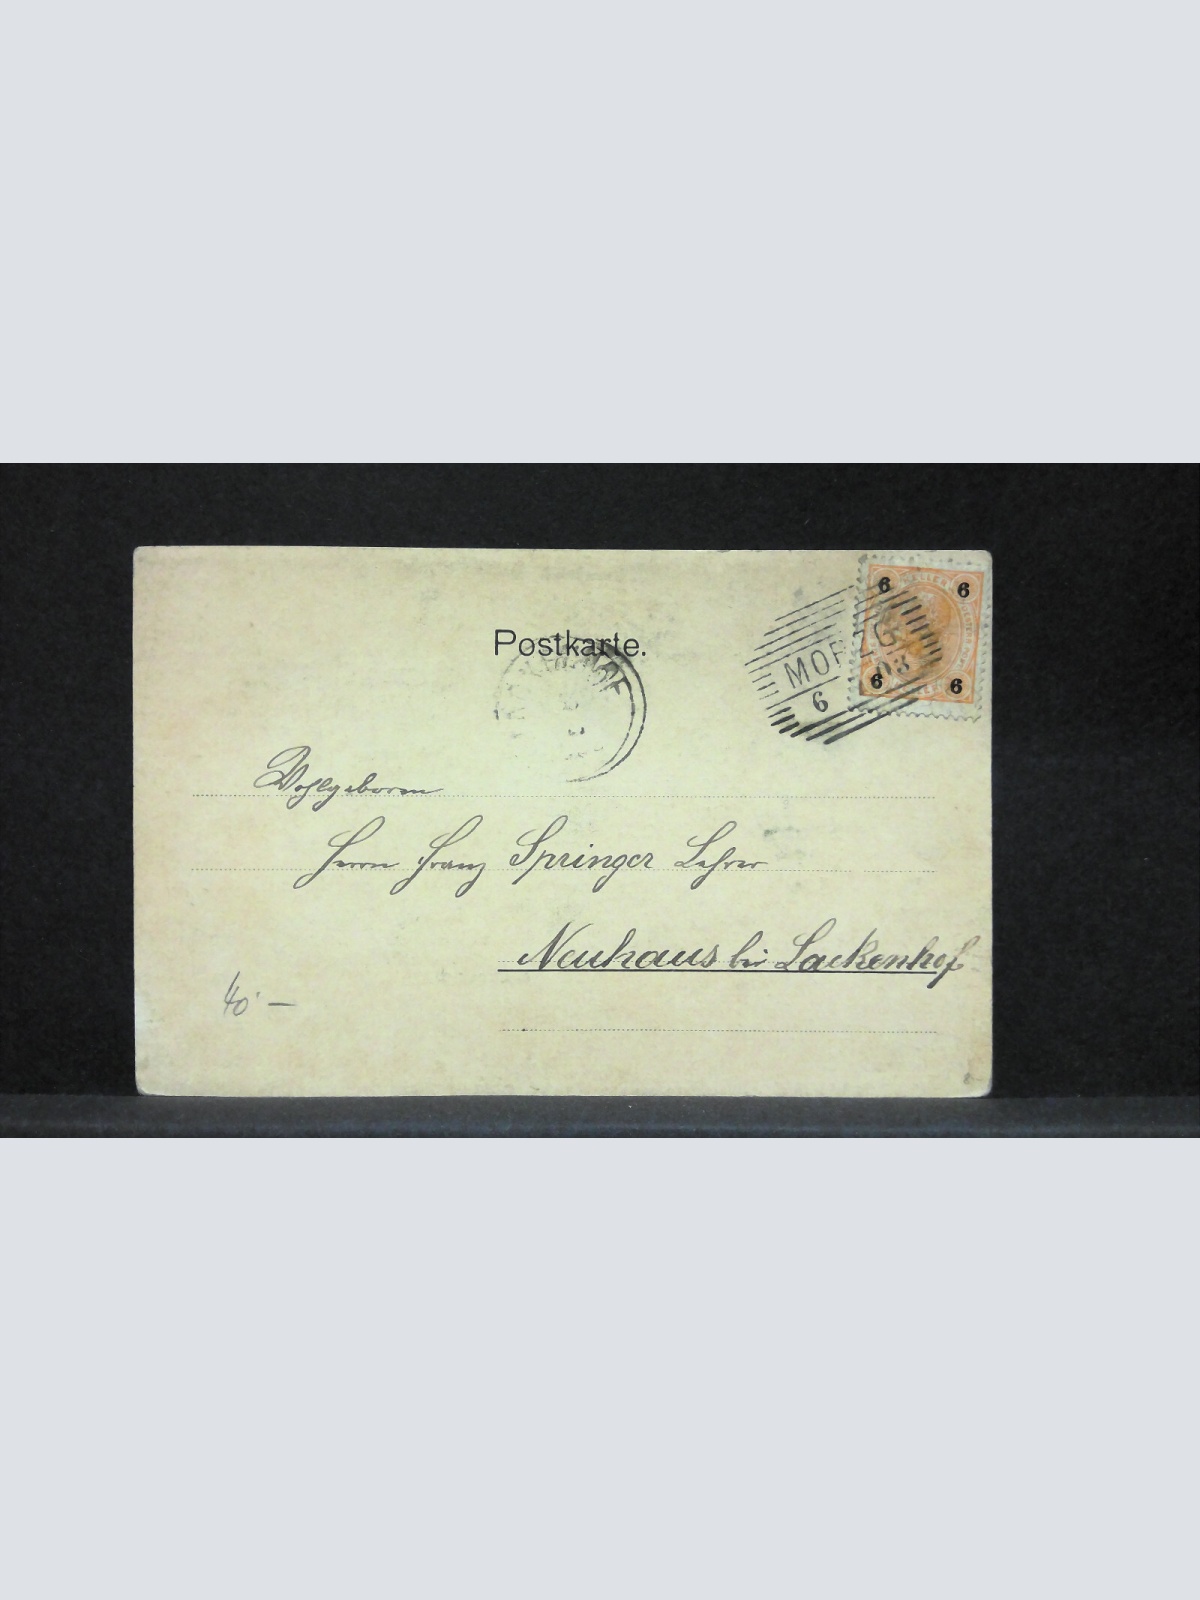 Postkarte.
6 6
6 6
03
6
Wohlgeboren
Herrn Franz Springer Lehrer
Neuhaus bei Lackenhof
40.—